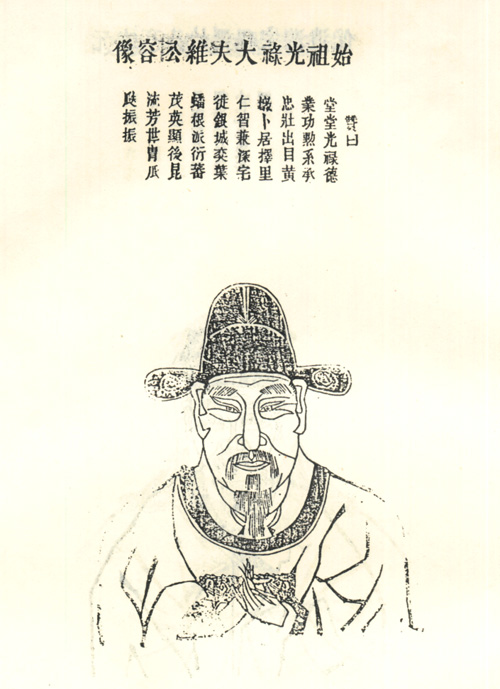 始祖光祿大夫維公容像
贊曰
堂堂光祿德
業功勲系承
忠壯出自黄
墩卜居擇里
仁智兼深宅
從銀城奕葉
蟠根派衍蕃
茂英顯後昆
流芳世胄瓜
瓞振振